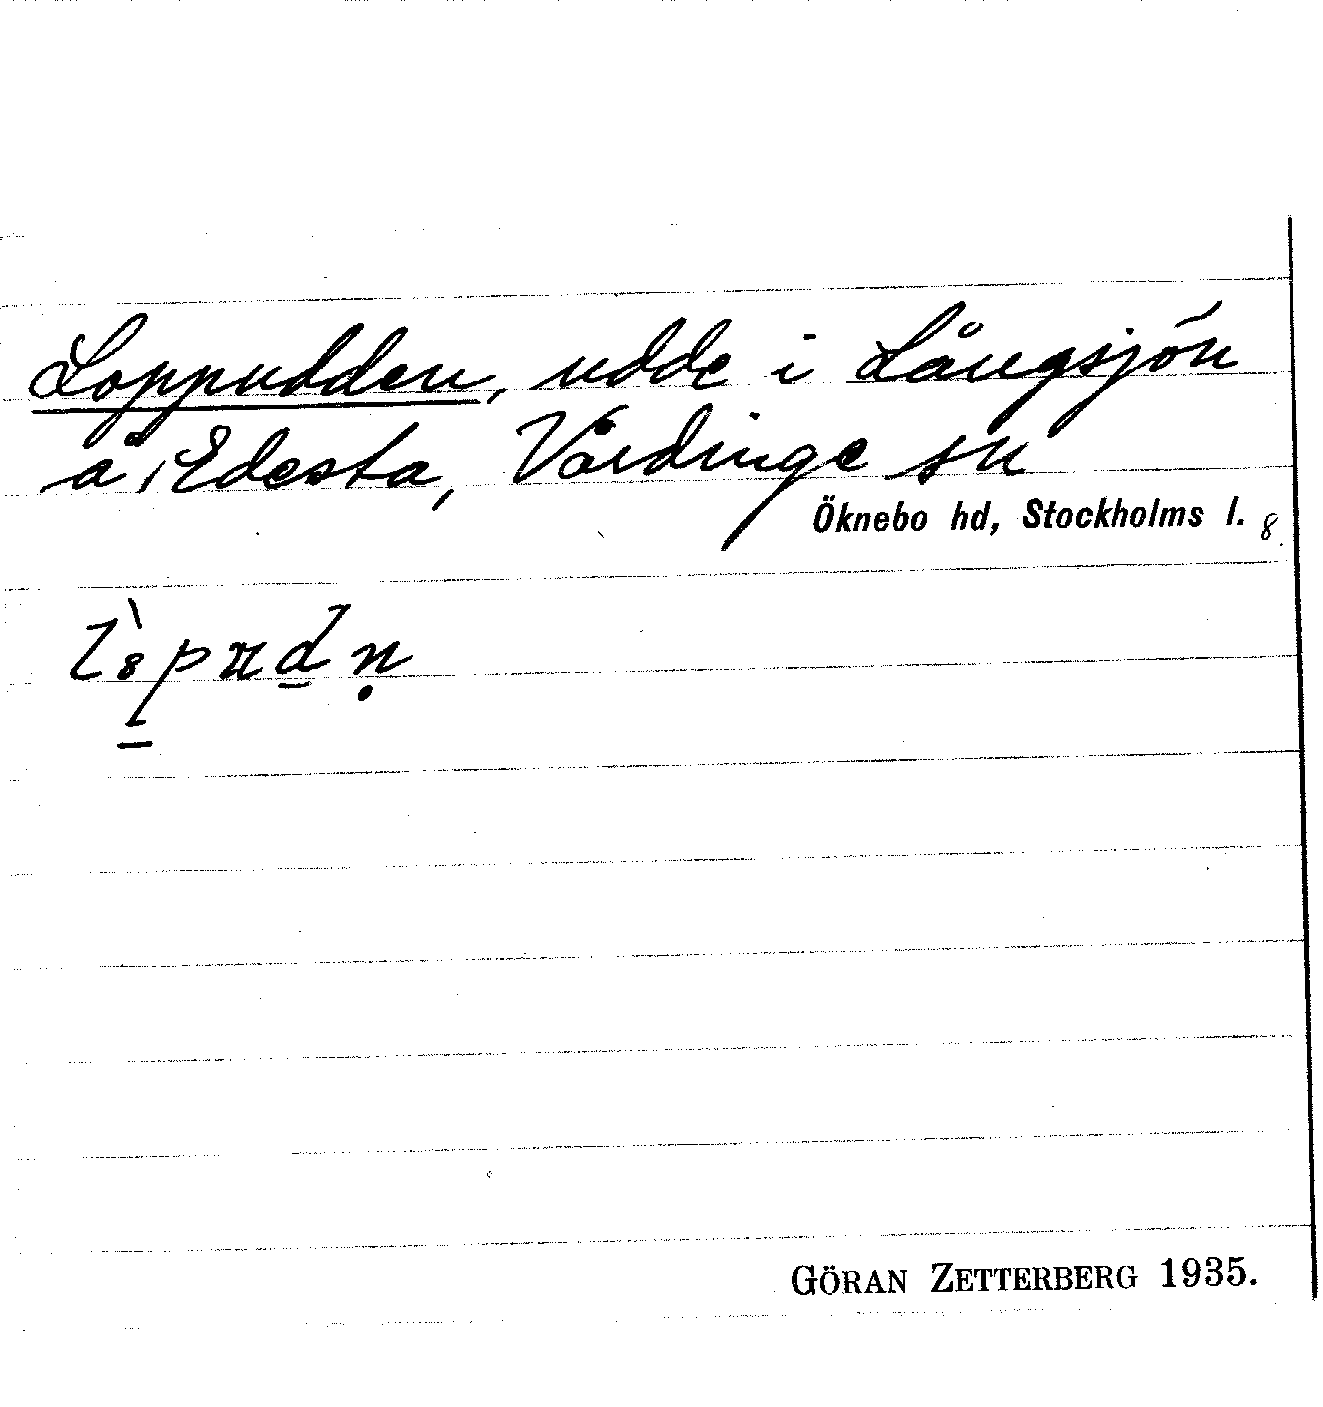 Loppudden, udde i Långsjön
å Edesta, Vårdinge sn
Öknebo hd, Stockholms l. 8.
GÖRAN ZETTERBERG 1935.